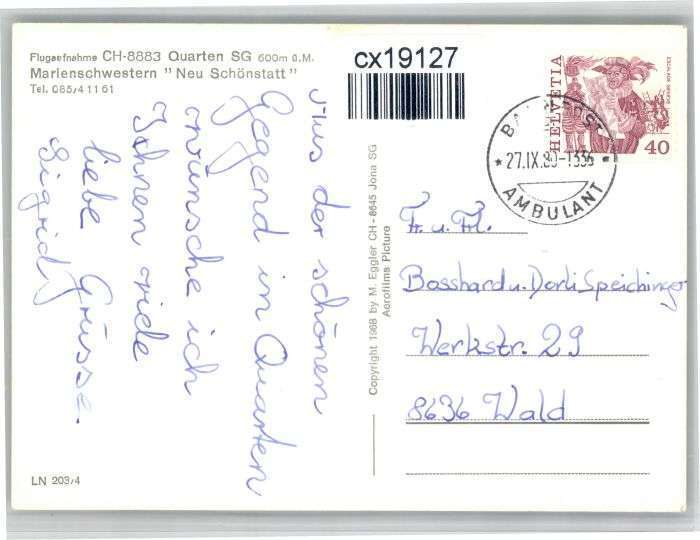 Flugaufnahme CH-8883 Quarten SG 600m ü.M.
Marienschwestern "Neu Schönstatt"
Tel. 085/4 11 61
cx19127
HELVETIA
40
27.IX.80-13
AMBULANT
Aus der schönen
Gegend in Quarten
wünsche ich
Ihnen viele
liebe Grüsse.
Sigrid
Copyright 1968 by M. Eggler CH-8645 Jona SG
Aerofilms Picture
Fr. u. Frl.
Bosshard u. Dorli Speichinger
Werkstr. 29
8636 Wald
LN 203/4